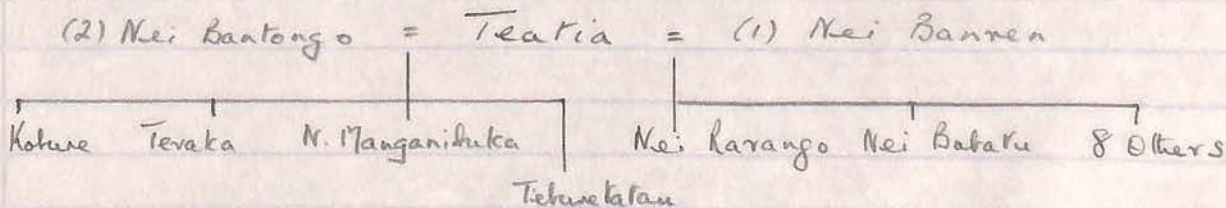 (2) Nei Bantongo = Teatia = (1) Nei Banren
Koture Teraka N. Manganibuka Nei Rarango Nei Babatu 8 Others